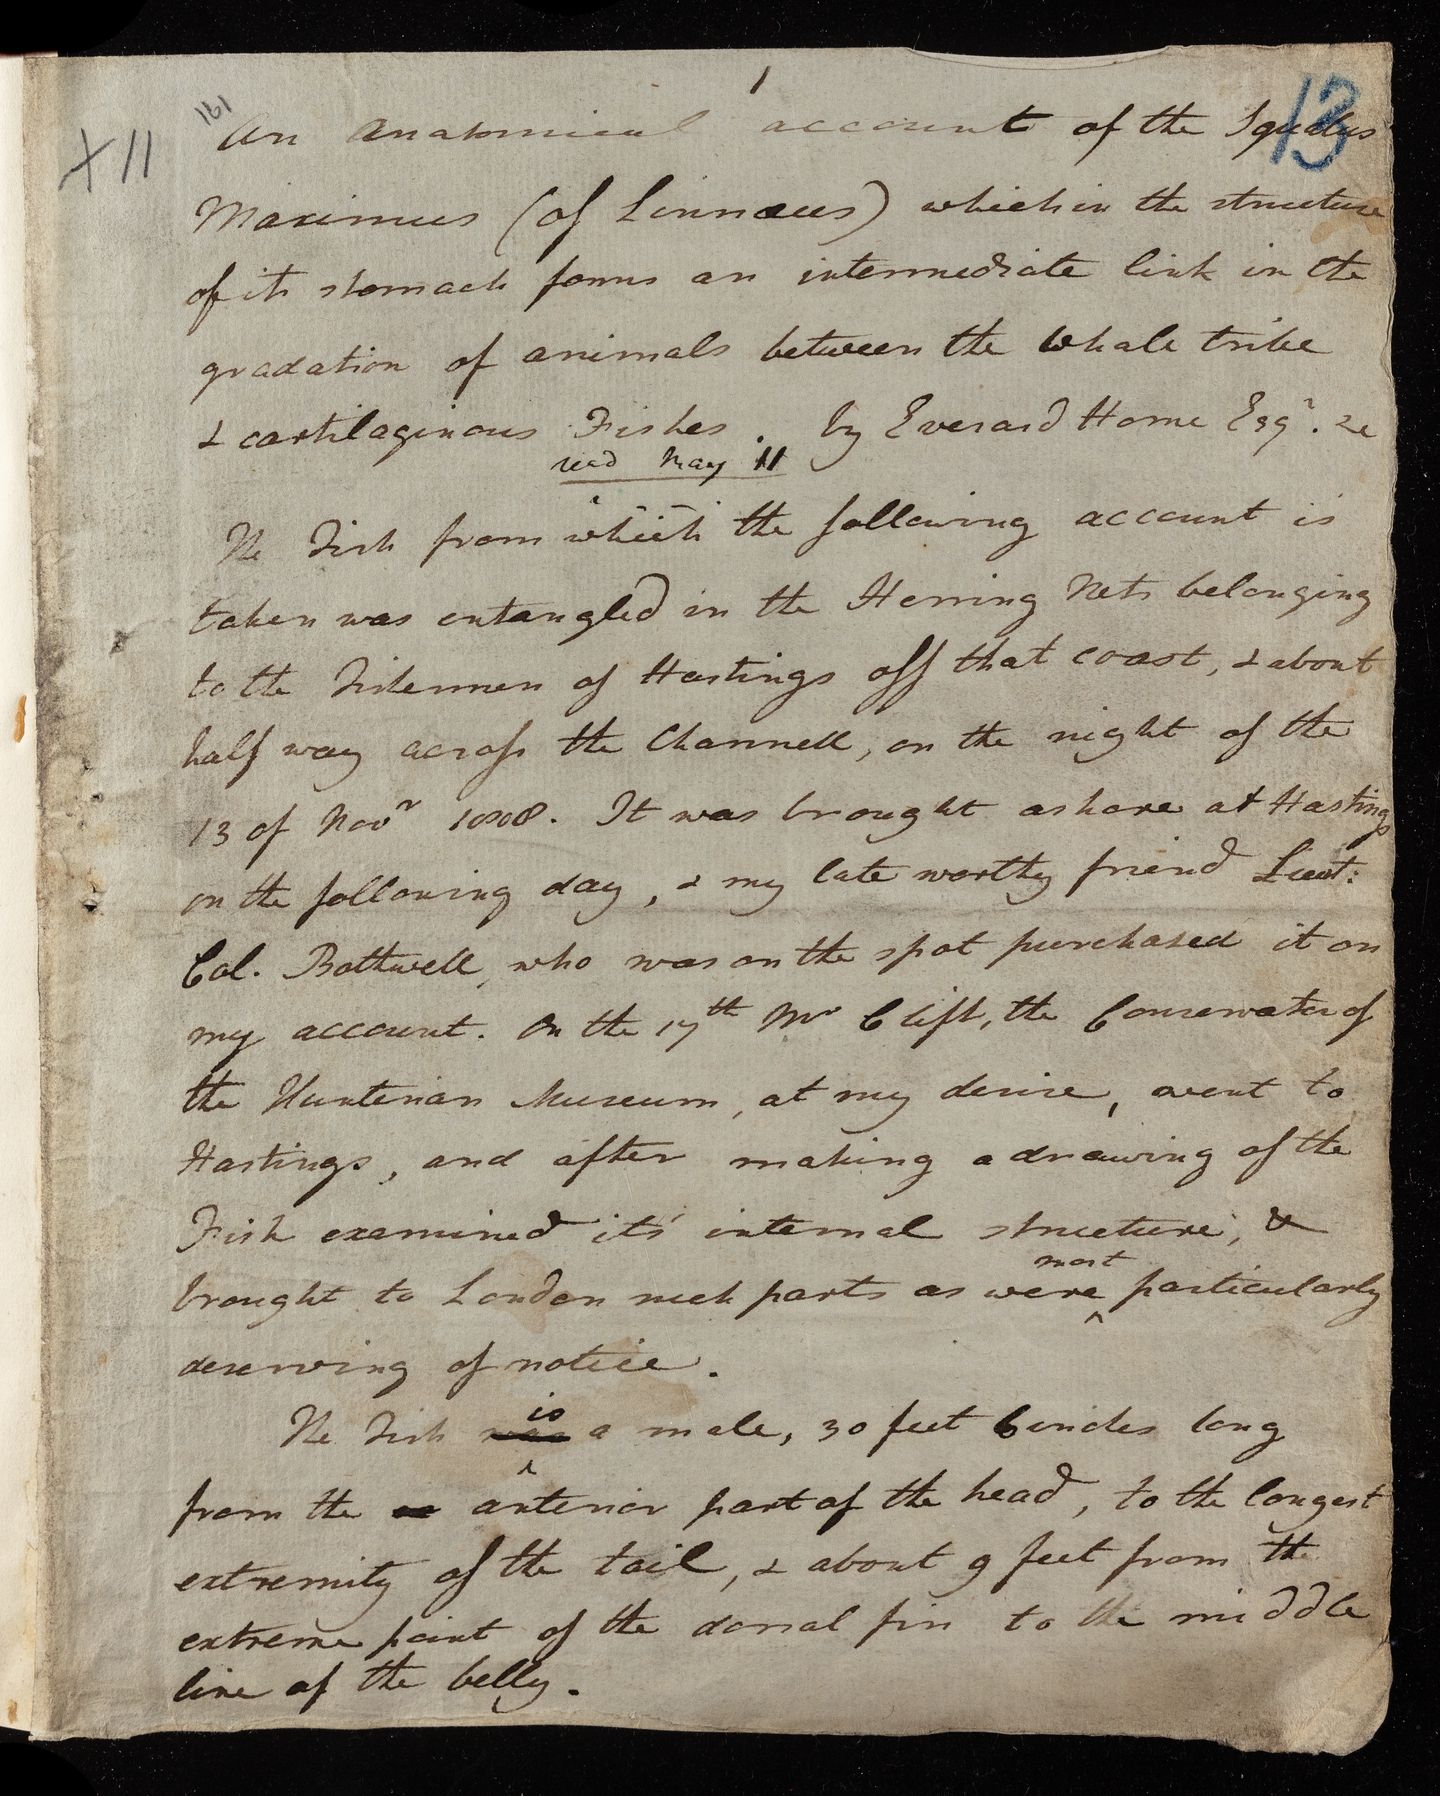 1
13
161
X11
An Anatomical account of the Squalus
Maximus (of Linnæus) which in the structure
of its stomach forms an intermediate link in the
gradation of animals between the Whale tribe
& cartilaginous Fishes. by Everard Home Esqr. &c
read May 11
The Fish from which the following account is
taken was entangled in the Herring Nets belonging
to the Fishermen of Hastings off that coast, & about
half way across the Channell, on the night of the
13 of Novr 1808. It was brought ashore at Hastings
on the following day, & my late worthy friend Lieut:
Col. Bothwell, who was on the spot purchased it on
my account. On the 17th Mr Clift, the Conservator of
the Hunterian Museum, at my desire, went to
Hastings, and after making a drawing of the
Fish examined it's internal structure, &
most
brought to London such parts as were ^ particularly
deserving of notice.
is
The Fish was ^ a male, 30 feet 6 inches long
from the anterior part of the head, to the longest
extremity of the tail, & about 9 feet from the
extreme point of the dorsal fin to the middle
line of the belly.